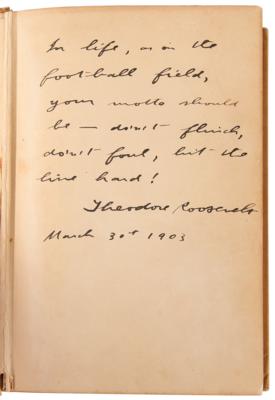 In life, as on the
foot-ball field,
your motto should
be – don't flinch,
don't foul, hit the
line hard!
Theodore Roosevelt
March 30th 1903